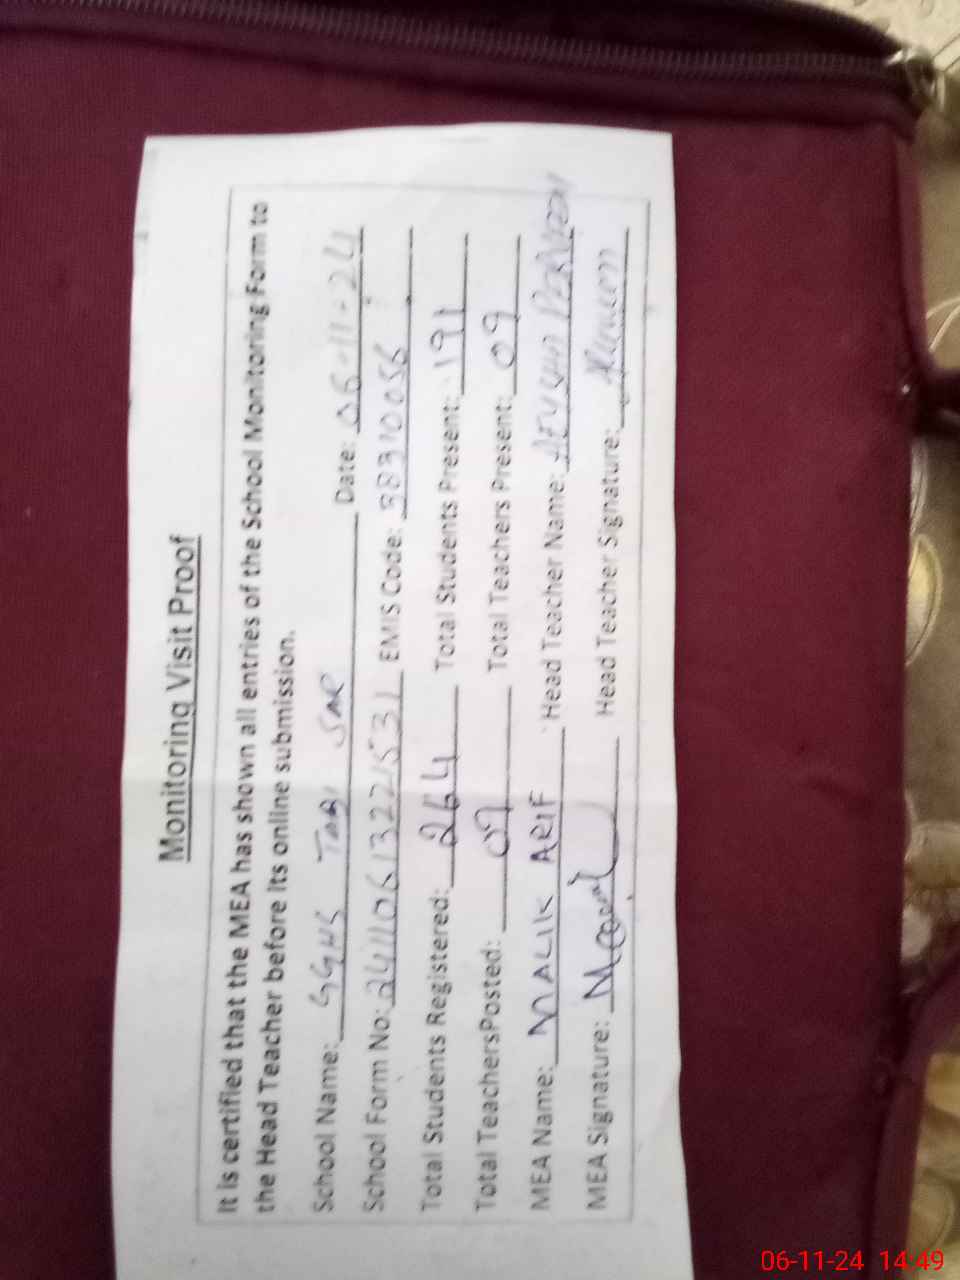 Monitoring Visit Proof
It is certified that the MEA has shown all entries of the School Monitoring Form to
the Head Teacher before its online submission.
School Name: GGHS TOBI SAR Date: 06-11-24
School Form No: 2411061322531 EMIS Code: 38310056
Total Students Registered: 264 Total Students Present: 191
Total TeachersPosted: 09 Total Teachers Present: 09
MEA Name: MALIK ARIF Head Teacher Name: PERVEEN
MEA Signature: Head Teacher Signature:
06-11-24 14:49